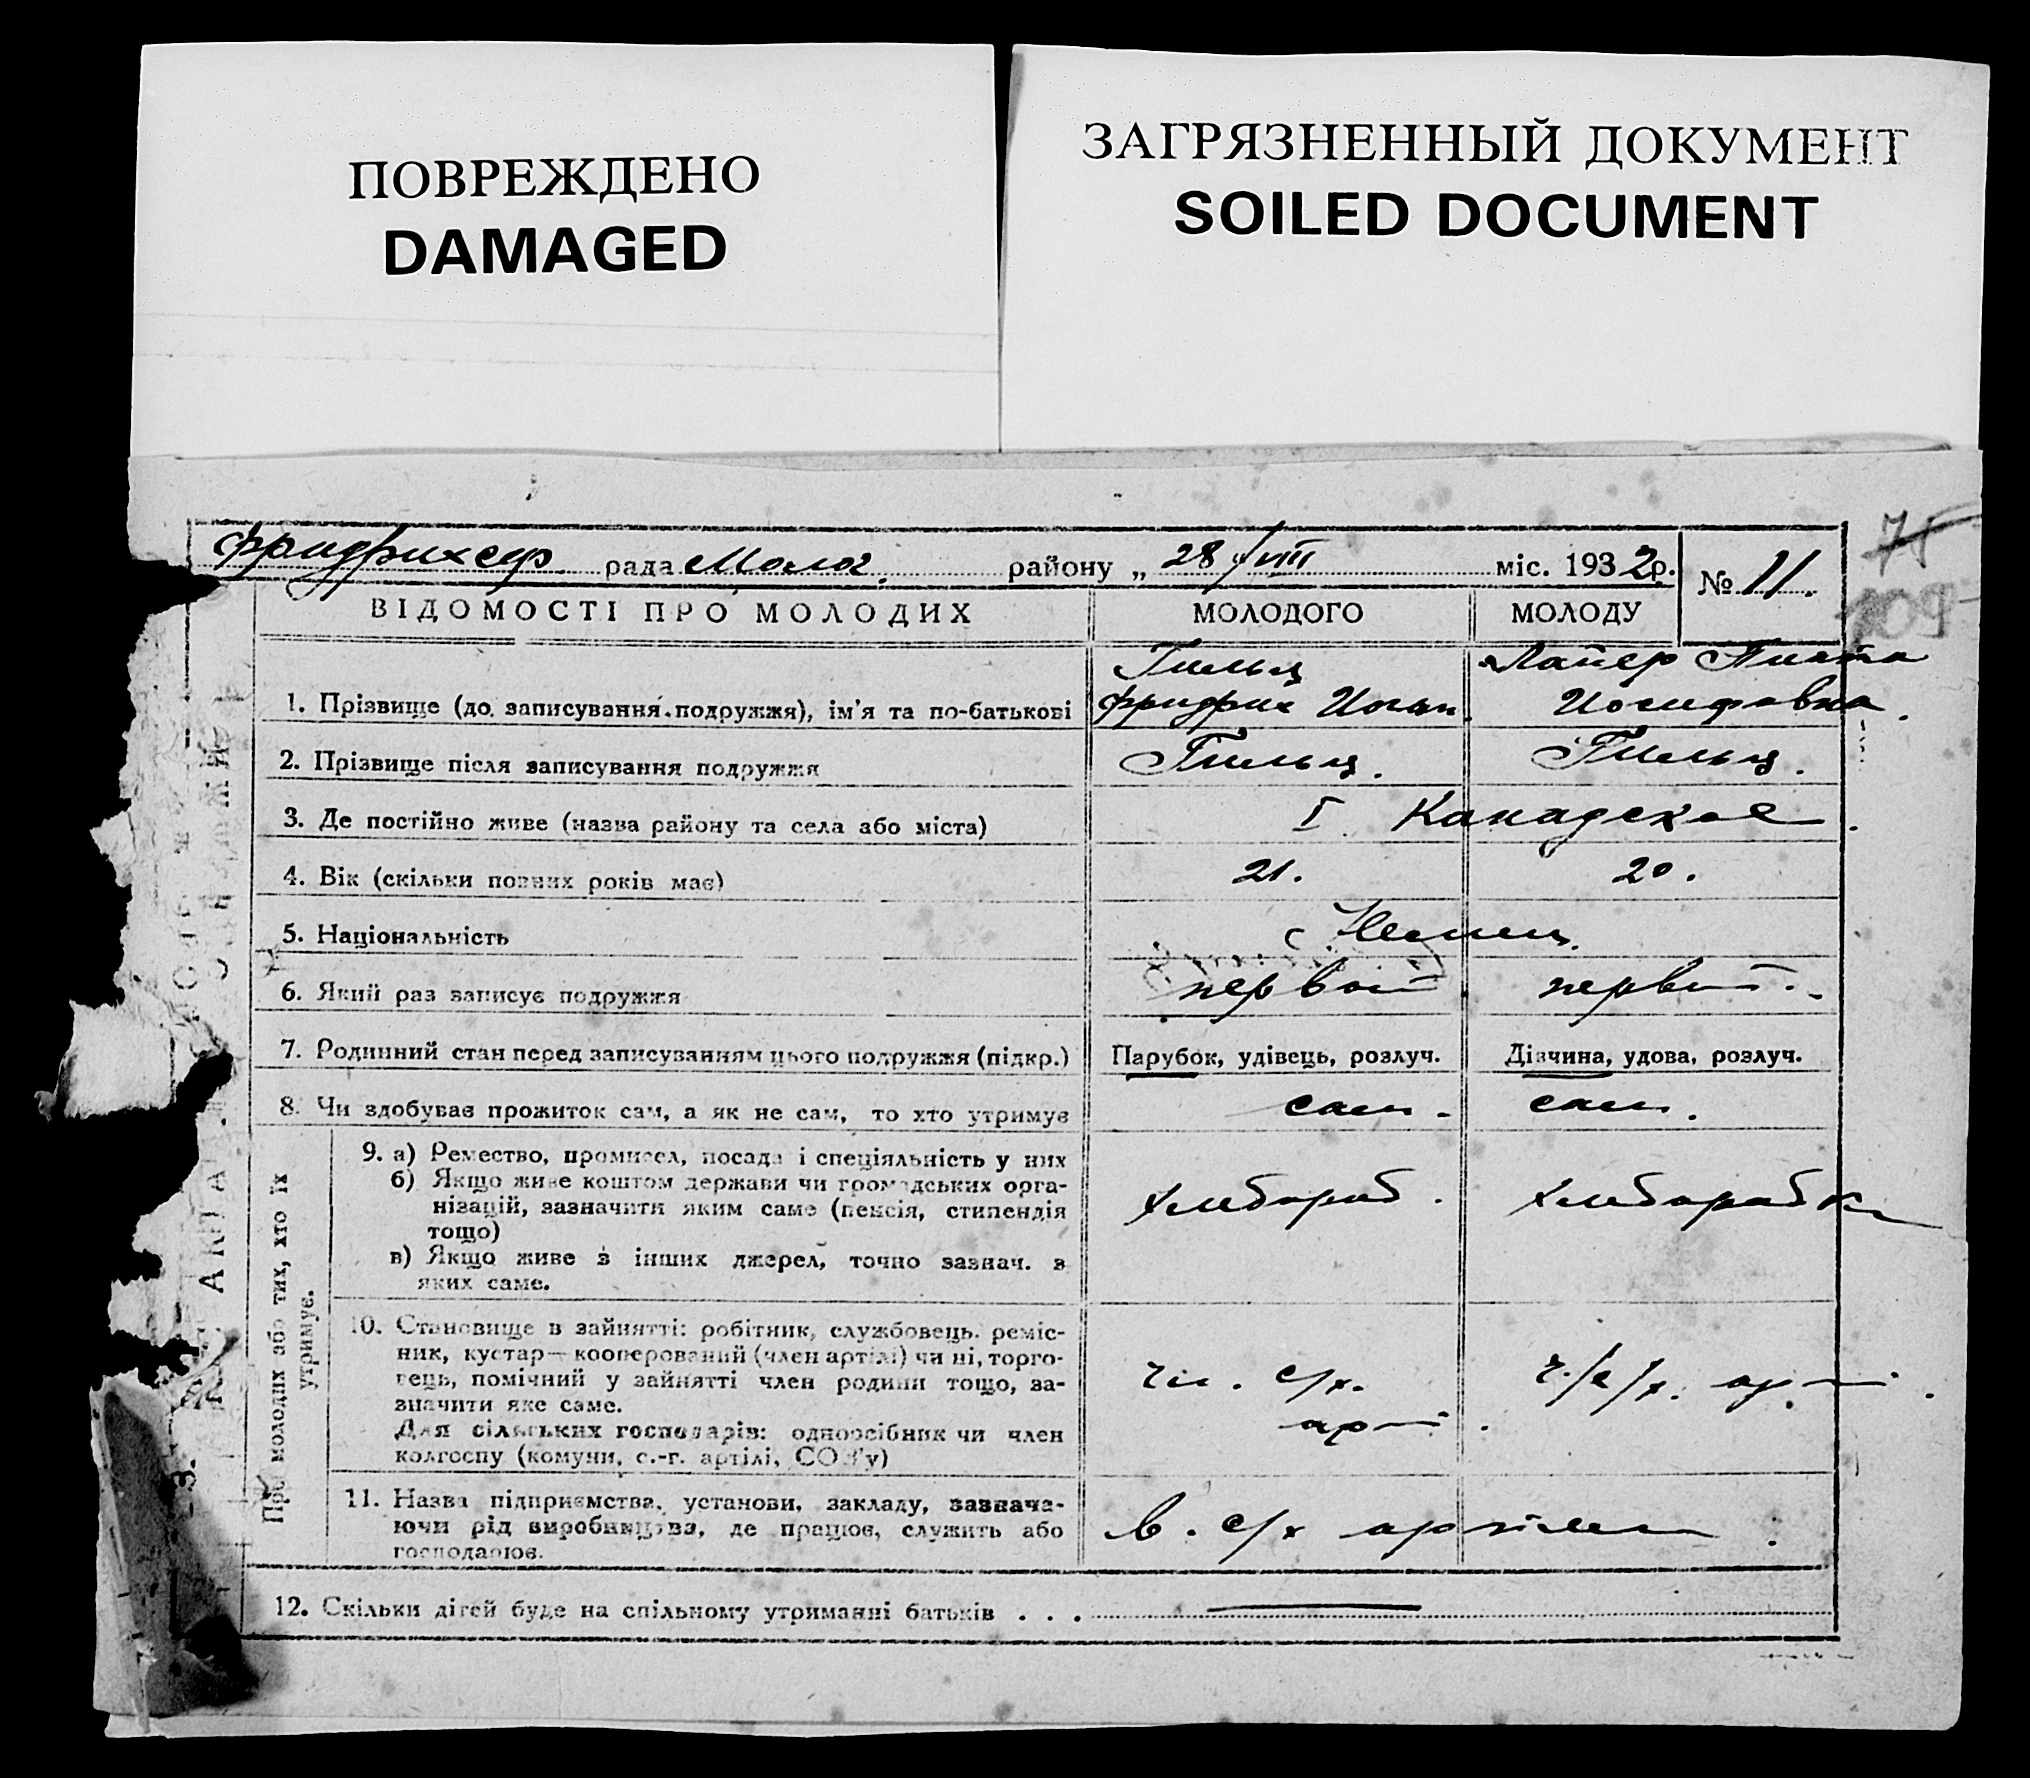 ПОВРЕЖДЕНО
DAMAGED
ЗАГРЯЗНЕННЫЙ ДОКУМЕНТ
SOILED DOCUMENT
75
109
Фридрихсф. рада Молоч. району „28“/VIII міс. 1932р. № 11.
ВІДОМОСТІ ПРО МОЛОДИХ МОЛОДОГО МОЛОДУ
1. Прізвище (до записування подружжя), ім'я та по-батькові Гильц Фридрих Иоган. Лайер
Иосифовна.
2. Прізвище після записування подружжя Гильц. Гильц.
3. Де постійно живе (назва району та села або міста) I Канадское.
4. Вік (скільки повних років має) 21. 20.
5. Національність Немец.
6. Який раз записує подружжя первый. первый.
7. Родинний стан перед записуванням цього подружжя (підкр.) Парубок, удівець, розлуч. Дівчина, удова, розлуч.
8. Чи здобував прожиток сам, а як не сам, то хто утримує сам. сам.
Про молодих або тих, хто їх утримує.
9. а) Ремество, промисел, посада і спеціяльність у них
б) Якщо живе коштом держави чи громадських орга-
нізацій, зазначити яким саме (пенсія, стипендія
тощо)
в) Якщо живе з інших джерел, точно зазнач. з
яких саме.
хлебороб. хлеборобка
10. Становище в зайнятті: робітник, службовець, реміс-
ник, кустар—кооперований (член артілі) чи ні, торго-
вець, помічний у зайнятті член родини тощо, за-
значити яке саме.
Для сільських господарів: одноосібник чи член
колгоспу (комуни, с.-г. артілі, СОЗ'у)
чл. с/х. арт. ч./с/х. арт.
11. Назва підприємства, установи, закладу, зазнача-
ючи рід виробництва, де працює, служить або
господарює.
в. с/х артели.
12. Скільки дітей буде на спільному утриманні батьків . . . —